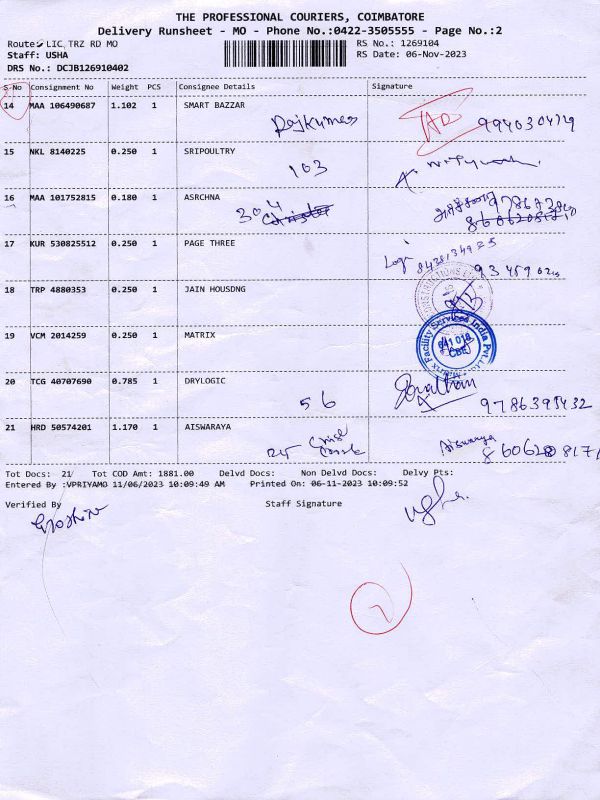 THE PROFESSIONAL COURIERS, COIMBATORE
Delivery Runsheet - MO - Phone No.:0422-3505555 - Page No.:2
Route: LIC, TRZ RD MO
RS No.: 1269104
Staff: USHA
RS Date: 06-Nov-2023
DRS No.: DCJB126910402
S.No Consignment No Weight PCS Consignee Details Signature
14 MAA 106490687 1.102 1 SMART BAZZAR
Rajkumar
15 NKL 8140225 0.250 1 SRIPOULTRY
103
16 MAA 101752815 0.180 1 ASRCHNA
304
17 KUR 530825512 0.250 1 PAGE THREE
Logi
18 TRP 4880353 0.250 1 JAIN HOUSDNG
19 VCM 2014259 0.250 1 MATRIX
Facility Services India Pvt.Ltd.
641 018
CBE
20 TCG 40707690 0.785 1 DRYLOGIC
56
9786395432
21 HRD 50574201 1.170 1 AISWARAYA
Aiswarya
Tot Docs: 21/ Tot COD Amt: 1881.00 Delvd Docs: Non Delvd Docs: Delvy Pts:
Entered By :VPRIYAMO 11/06/2023 10:09:49 AM Printed On: 06-11-2023 10:09:52
Verified By Staff Signature